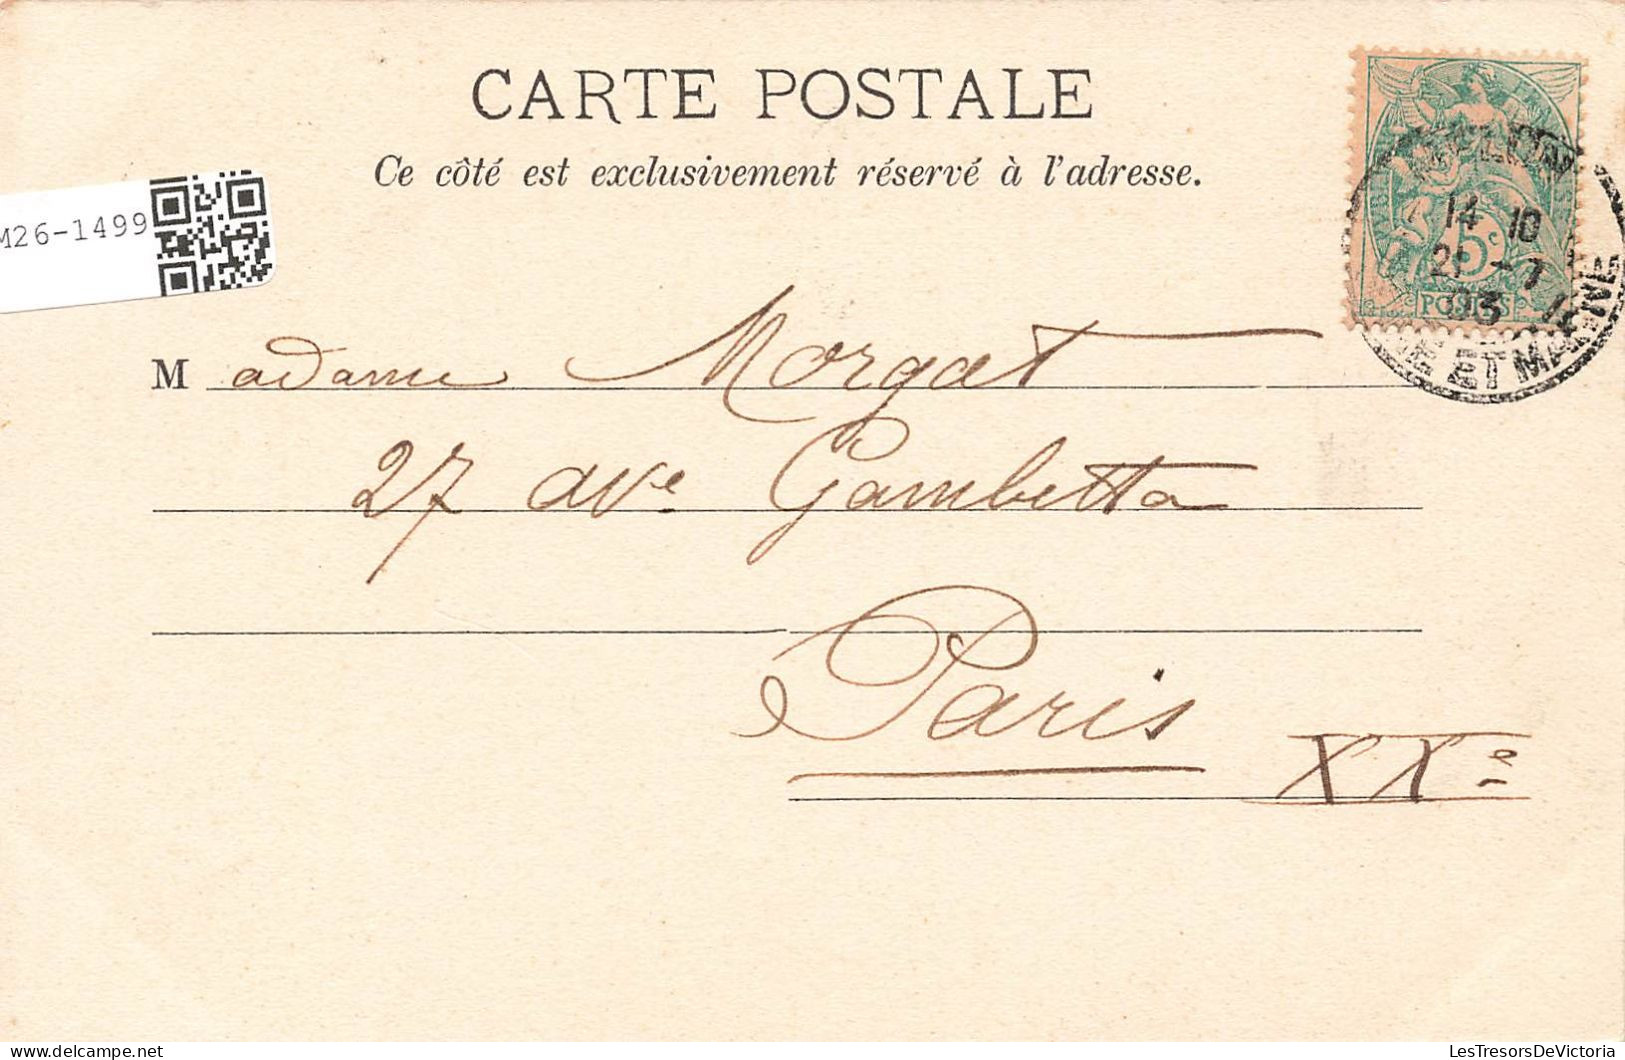 CARTE POSTALE
Ce côté est exclusivement réservé à l'adresse.
M26-1499
5c
POSTES
14 10
21 - 7
03
NE ET MARNE
Madame Morgat
27 ave Gambetta
Paris
XXe
LesTresorsDeVictoria